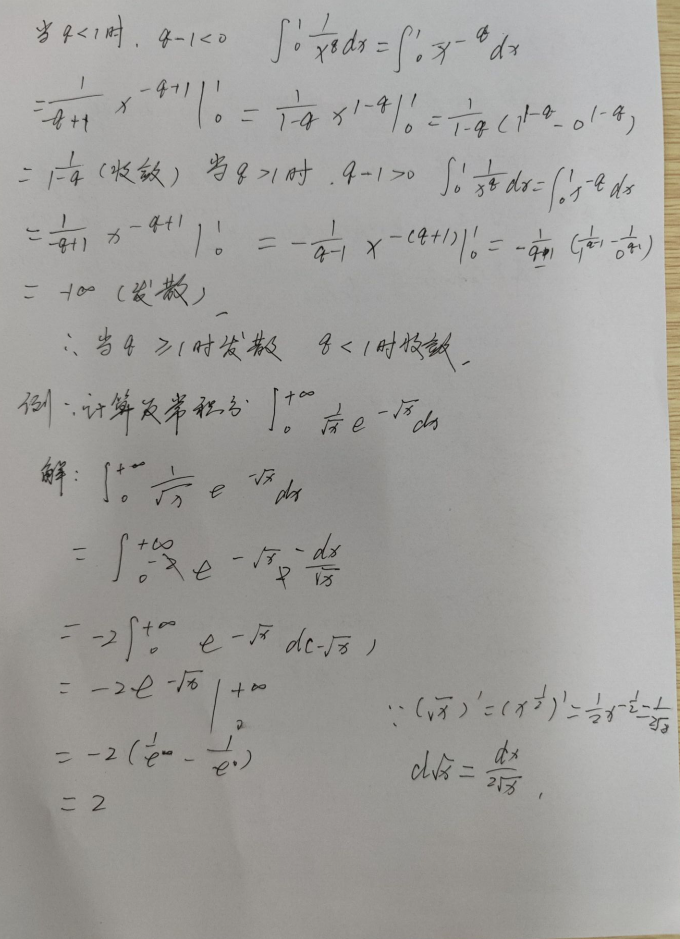 当 q<1时, q-1<0 ∫₀¹ 1/x^q dx = ∫₀¹ x^-q dx
= 1/(-q+1) x^(-q+1) |₀¹ = 1/(1-q) x^(1-q) |₀¹ = 1/(1-q) (1^(1-q) - 0^(1-q))
= 1/(1-q) (收敛) 当q>1时, q-1>0 ∫₀¹ 1/x^q dx = ∫₀¹ x^-q dx
= 1/(-q+1) x^(-q+1) |₀¹ = -1/(q-1) x^-(q+1) |₀¹ = -1/(q-1) (1/1^(q-1) - 1/0^(q-1))
= +∞ (发散)
∴ 当q ≥1时发散 q<1时收敛
例: 计算反常积分 ∫₀^+∞ 1/√x e^-√x dx
解: ∫₀^+∞ 1/√x e^-√x dx
= ∫₀^+∞ -2 e^-√x -dx/2√x
= -2∫₀^+∞ e^-√x d(-√x)
= -2e^-√x |₀^+∞
∵ (√x)' = (x^1/2)' = 1/2 x^-1/2 = 1/2√x
= -2(1/e^∞ - 1/e^0)
d√x = dx/2√x
= 2